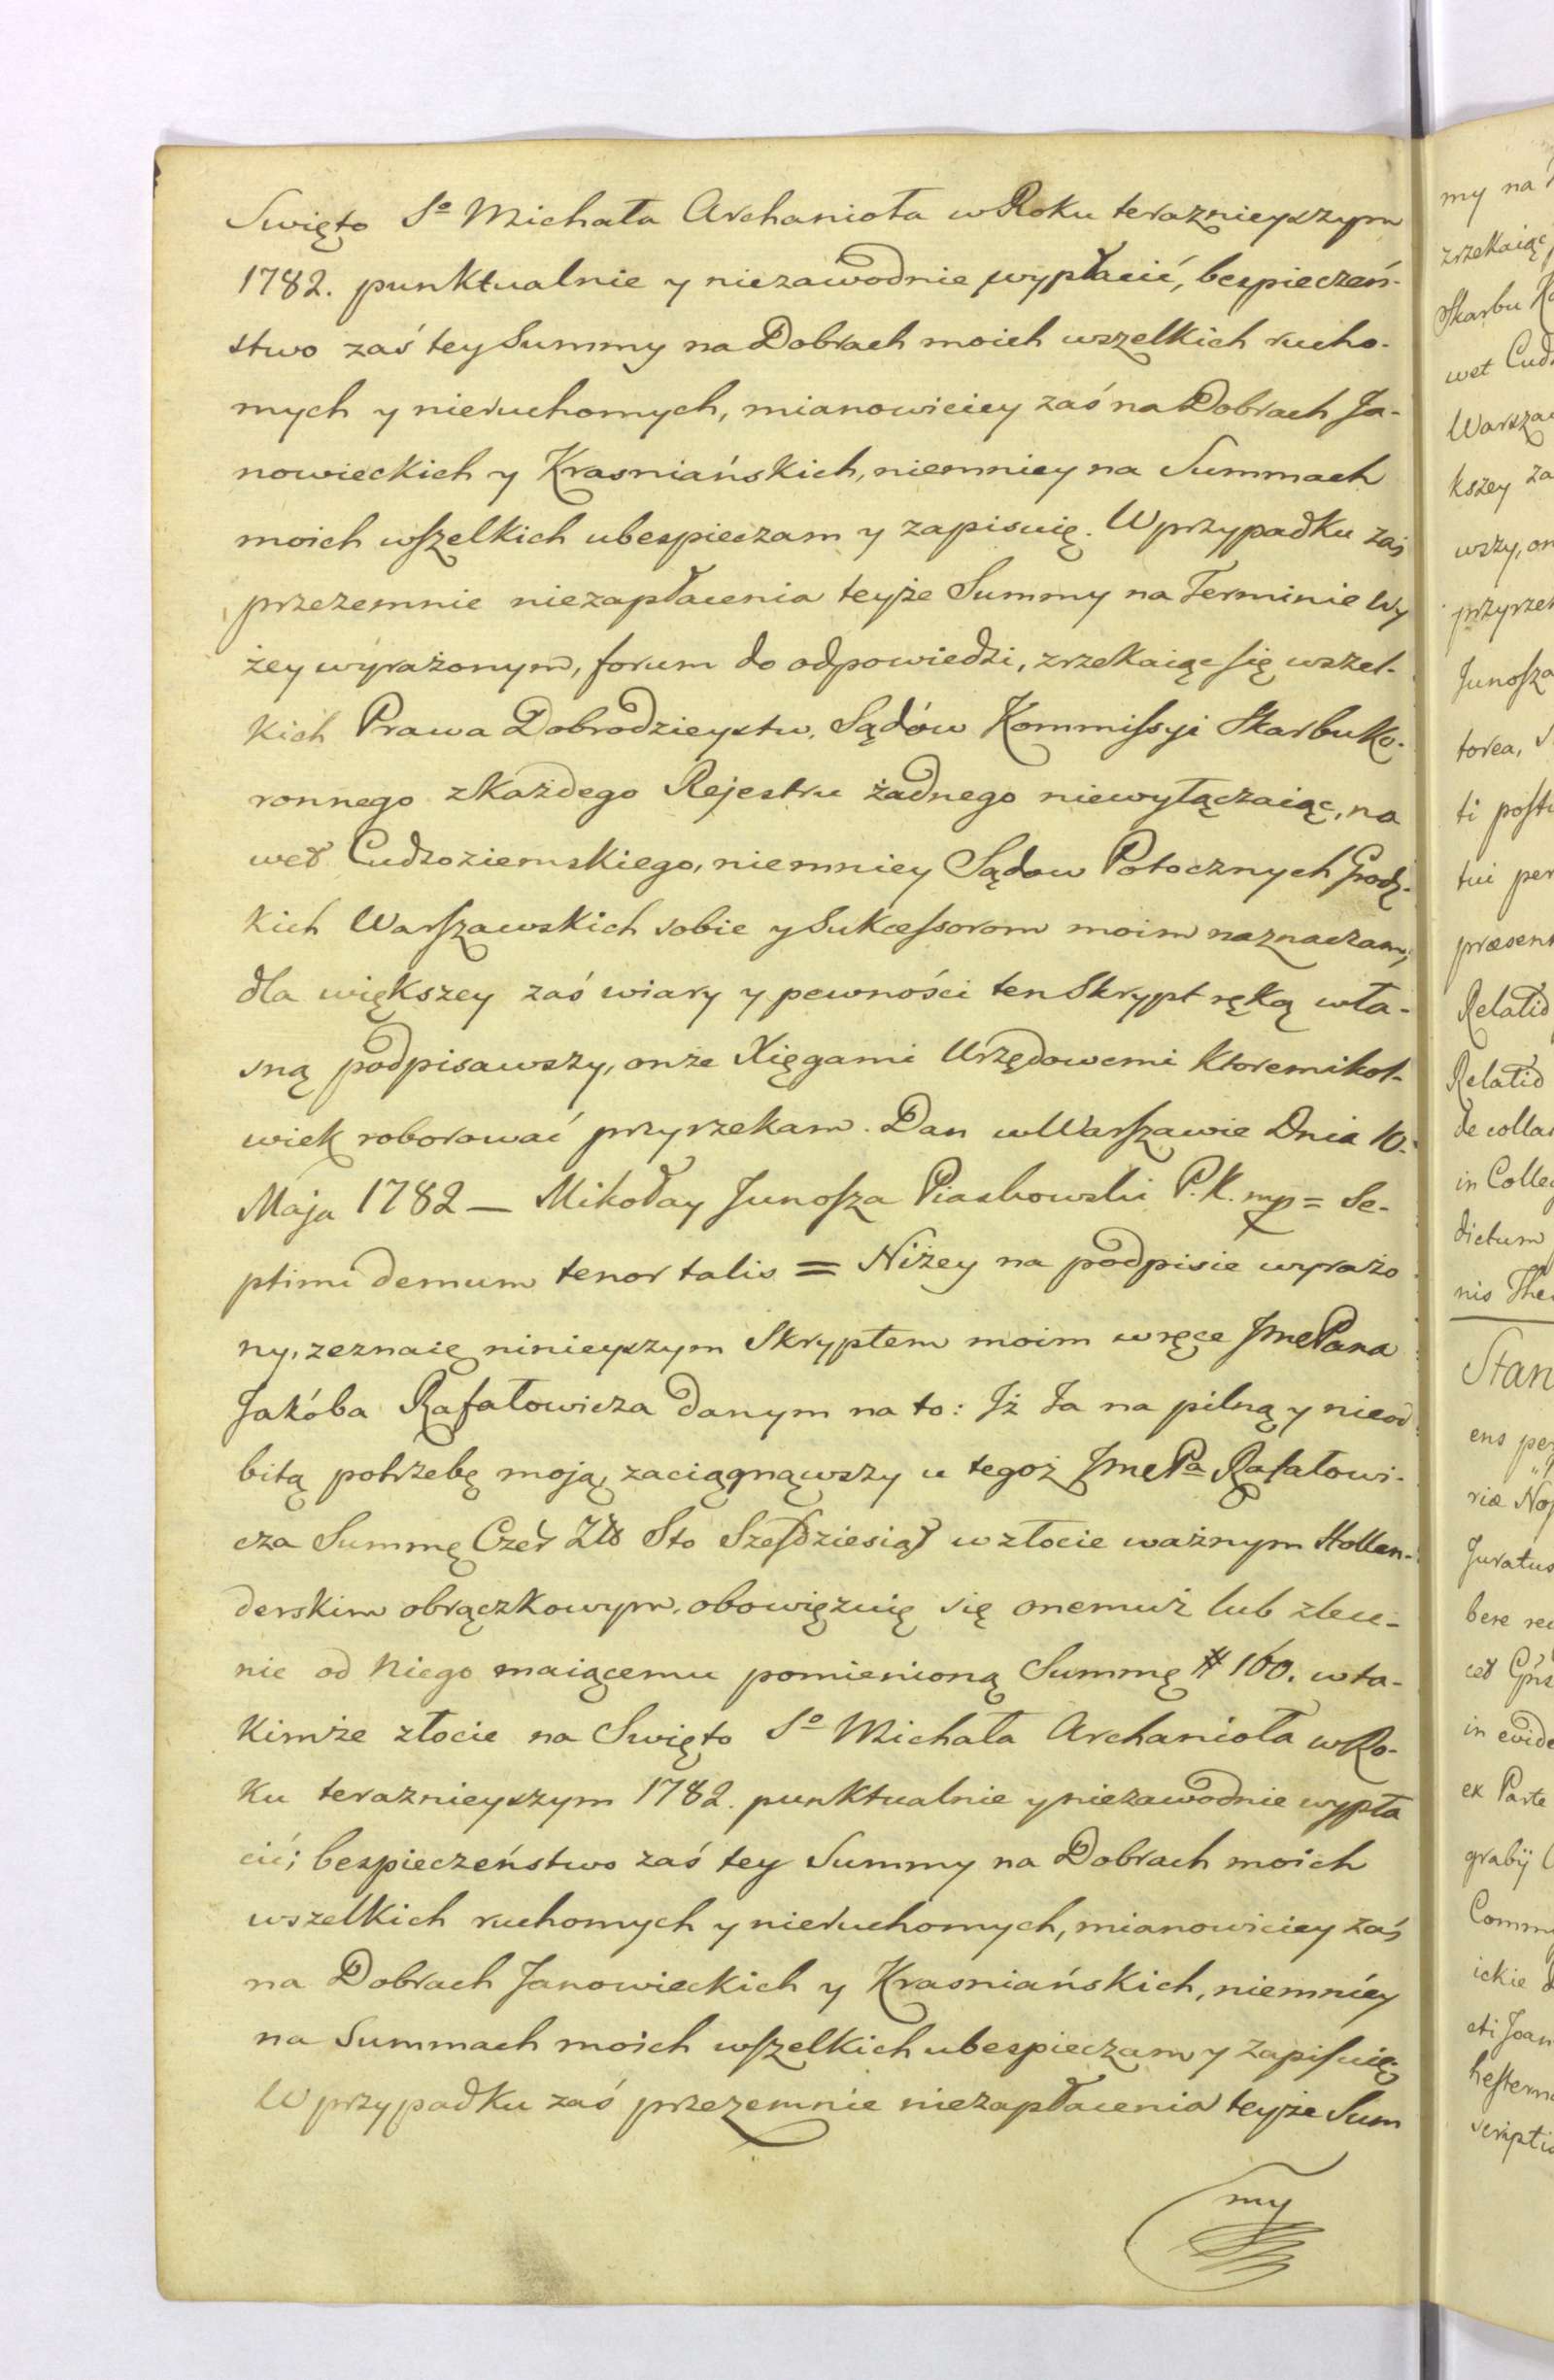 Swięto Sº Michała Archanioła w Roku teraznieyszym
1782. punktualnie y niezawodnie wypłacić, bespieczeń-
stwo zaś tey Summy na Dobrach moich wszelkich rucho-
mych y nieruchomych, mianowiciey zaś na Dobrach Ja-
nowieckich y Krasniańskich, niemniey na Summach
moich wſzelkich ubespieczam y zapisuię. W przypadku zaś
przezemnie niezapłacenia teyże Summy na Terminie wy
żey wyrażonym, forum do odpowiedzi, zrzekaiąc się wszel-
kich Prawa Dobrodzieystw, Sądów Kommiſsyi Skarbu Ko-
ronnego z Każdego Rejestru żadnego niewyłączaiąc, na
wet Cudzoziemskiego, niemniey Sądow Potocznych Grodz-
kich Warſzawskich sobie y Sukceſsorom moim naznaczam,
dla większey zaś wiary y pewności ten Skrypt ręką wła-
sną podpisawszy, onże Xięgami Urzędowemi Ktoremikol-
wiek roborować przyrzekam. Dan w Warſzawie Dnia 10.
Maja 1782 — Mikołay Junoſza Piaskowski P.K. mp = Se-
ptimi demum tenor talis = Niżey na podpisie wyrażo
ny, zeznaię ninieyszym Skryptem moim w ręce JmcPana
Jakóba Rafałowicza danym na to: Jż Ja na pilną y nieod
bitą potrzebę moją, zaciągnąwszy u tegoż JmcPª Rafałowi-
cza Summę Czer Zł Sto Szeſdziesiąt w złocie ważnym Hollen-
derskim obrączkowym, obowięzuię się onemuż lub zlece-
nie od Niego maiącemu pomienioną Summę # 160. w ta-
kimże złocie na Swięto Sº Michała Archanioła w Ro-
ku teraznieyszym 1782. punktualnie y niezawodnie wypła
cić; bespieczeństwo zaś tey Summy na Dobrach moich
wszelkich ruchomych y nieruchomych, mianowiciey zaś
na Dobrach Janowieckich y Krasniańskich, niemniey
na Summach moich wſzelkich ubespieczam y zapiſuię;
W przypadku zaś przezemnie niezapłacenia teyże Sum
my
my na
zrzekaiąc
Skarbu
wet Cud
Warsza
kszey za
wszy, on
przyrzek
Junoſza
torea,
ti poſt
tui per
præsen
Relatio
Relatio
de colla
in Colle
dictum
nis The
Stan
ens per
riæ
Juratus
bere re
cet
in evide
ex Parte
grabij
Comm
ickie
cti Joan
heſtern
scriptio